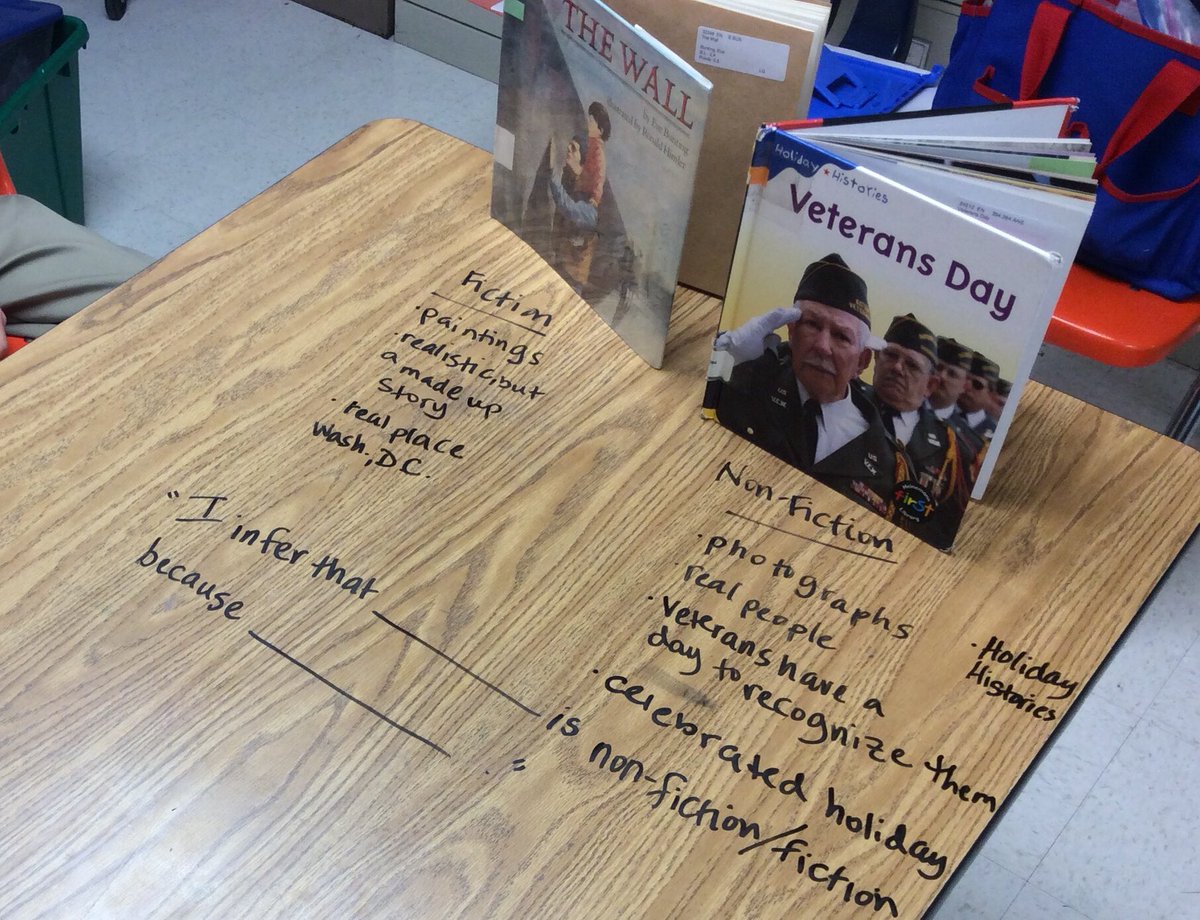 THE WALL
by Eve Bunting
illustrated by Ronald Himler
Holiday Histories
Veterans Day
US
US
first
Library
Fiction
· paintings
· realistic but
a made up
story
· real place
Wash., D.C.
Non-Fiction
· photographs
· real people
· Veterans have a
day to recognize them
· celebrated holiday
· Holiday
Histories
"I infer that ______ is non-fiction/fiction
because ______ ."